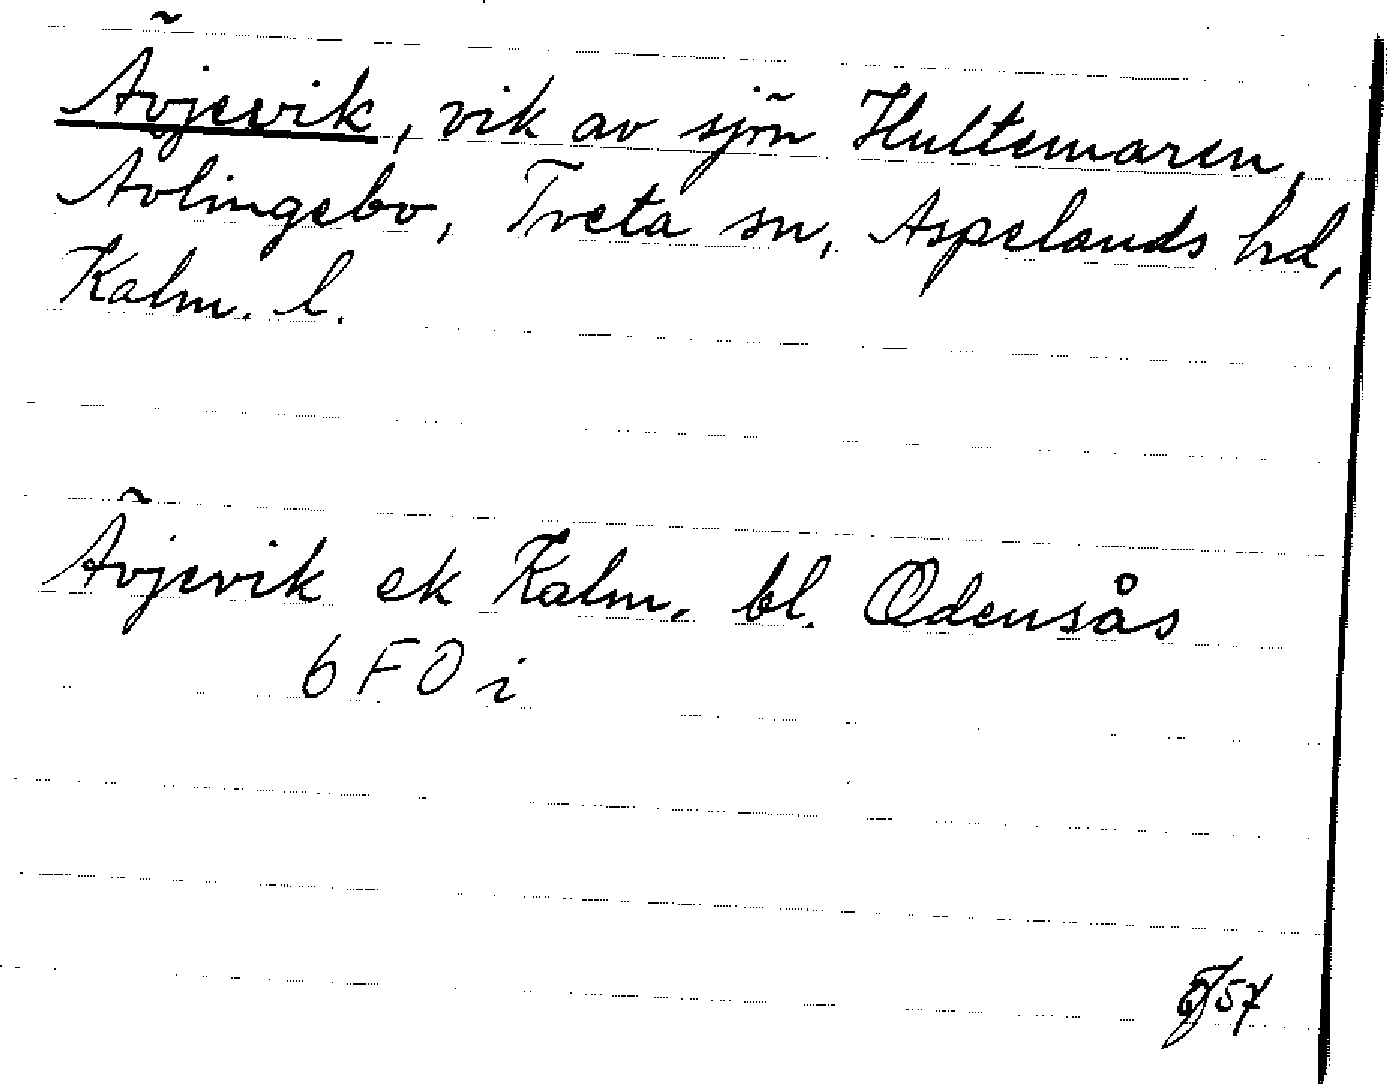 Ävjevik, vik av sjön Hultemaren,
Avlingebo, Tveta sn, Aspelands hd,
Kalm. l.
Ävjevik ek Kalm. bl. Odensås
6 F 0 i
57